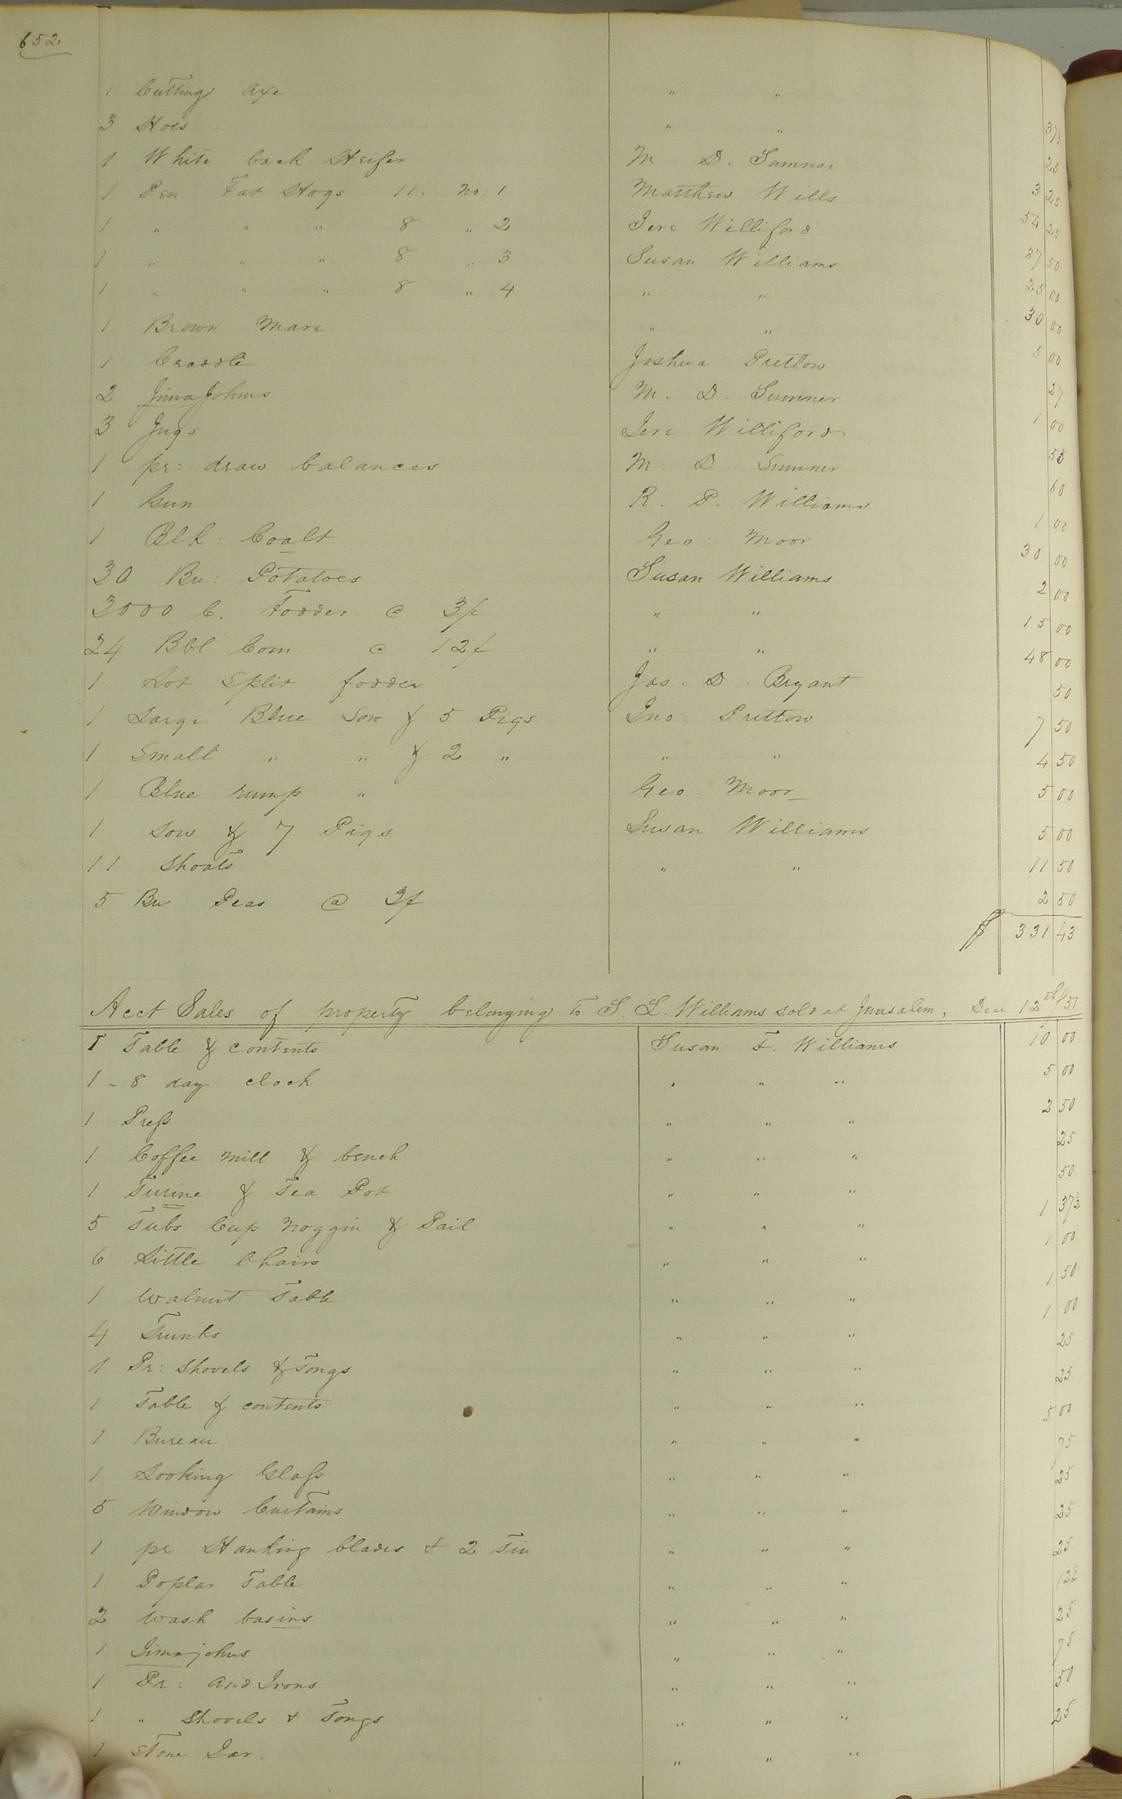 652
1 Cutting axe " " 37½
3 Hoes " " 25
1 White back Heifer M D. Sumner 3 25
1 Pen Fat Hogs 11. No. 1 Matthew Wills 54 25
1 " " " 8 " 2 Jere Williford 37 50
1 " " " 8 " 3 Susan Williams 25 00
1 " " " 8 " 4 " " 30 00
1 Brown Mare " " 5 00
1 Craddle Joshua Pretlow 27
2 Jimajohns M. D. Sumner 1 00
3 Jugs Jere Williford 55
1 pr: draw balances M. D Sumner 60
1 Gun R. P. Williams 1 00
1 Blk: Coalt Geo: Moor 30 00
30 Bu: Potatoes Susan Williams 2 00
3000 C. Fodder @ 3/ " " 15 00
24 Bbl Corn @ 12/ " " 48 00
1 Lot Split fodder Jas. D. Bryant 50
1 Large Blue Sow & 5 Pigs Jno: Pretlow 7 50
1 Small " " & 2 " " " 4 50
1 Blue rump " Geo: Moor 5 00
1 Sow & 7 Pigs Susan Williams 5 00
11 Shoats " " 11 50
5 Bu Peas @ 3/ 2 50
$ 331 43
Acct Sales of property belonging to S. L. Williams sold at Jerusalem, Dec 12th/51
1 Table & contents Susan F. Williams 10 00
1 - 8 day clock " " " 5 00
1 Press " " " 2 50
1 Coffee mill & bench " " " 25
1 Turine & Tea Pot " " " 50
5 Tubs Cup Noggin & Pail " " " 1 37½
6 Little Chairs " " " 1 00
1 Walnut Table " " " 1 50
4 Trunks " " " 1 00
1 Pr: Shovels & Tongs " " " 25
1 Table & contents " " " 25
1 Bureau " " " 5 00
1 Looking Glass " " " 75
5 Window Curtains " " " 25
1 pr Hanking blades & 2 Tin " " " 25
1 Poplar Table " " " 25
2 Wash basins " " " 12½
1 Jimajohns " " " 25
1 Pr: And Irons " " " 75
1 " Shovels & Tongs " " " 50
1 Stone Jar. " " " 25